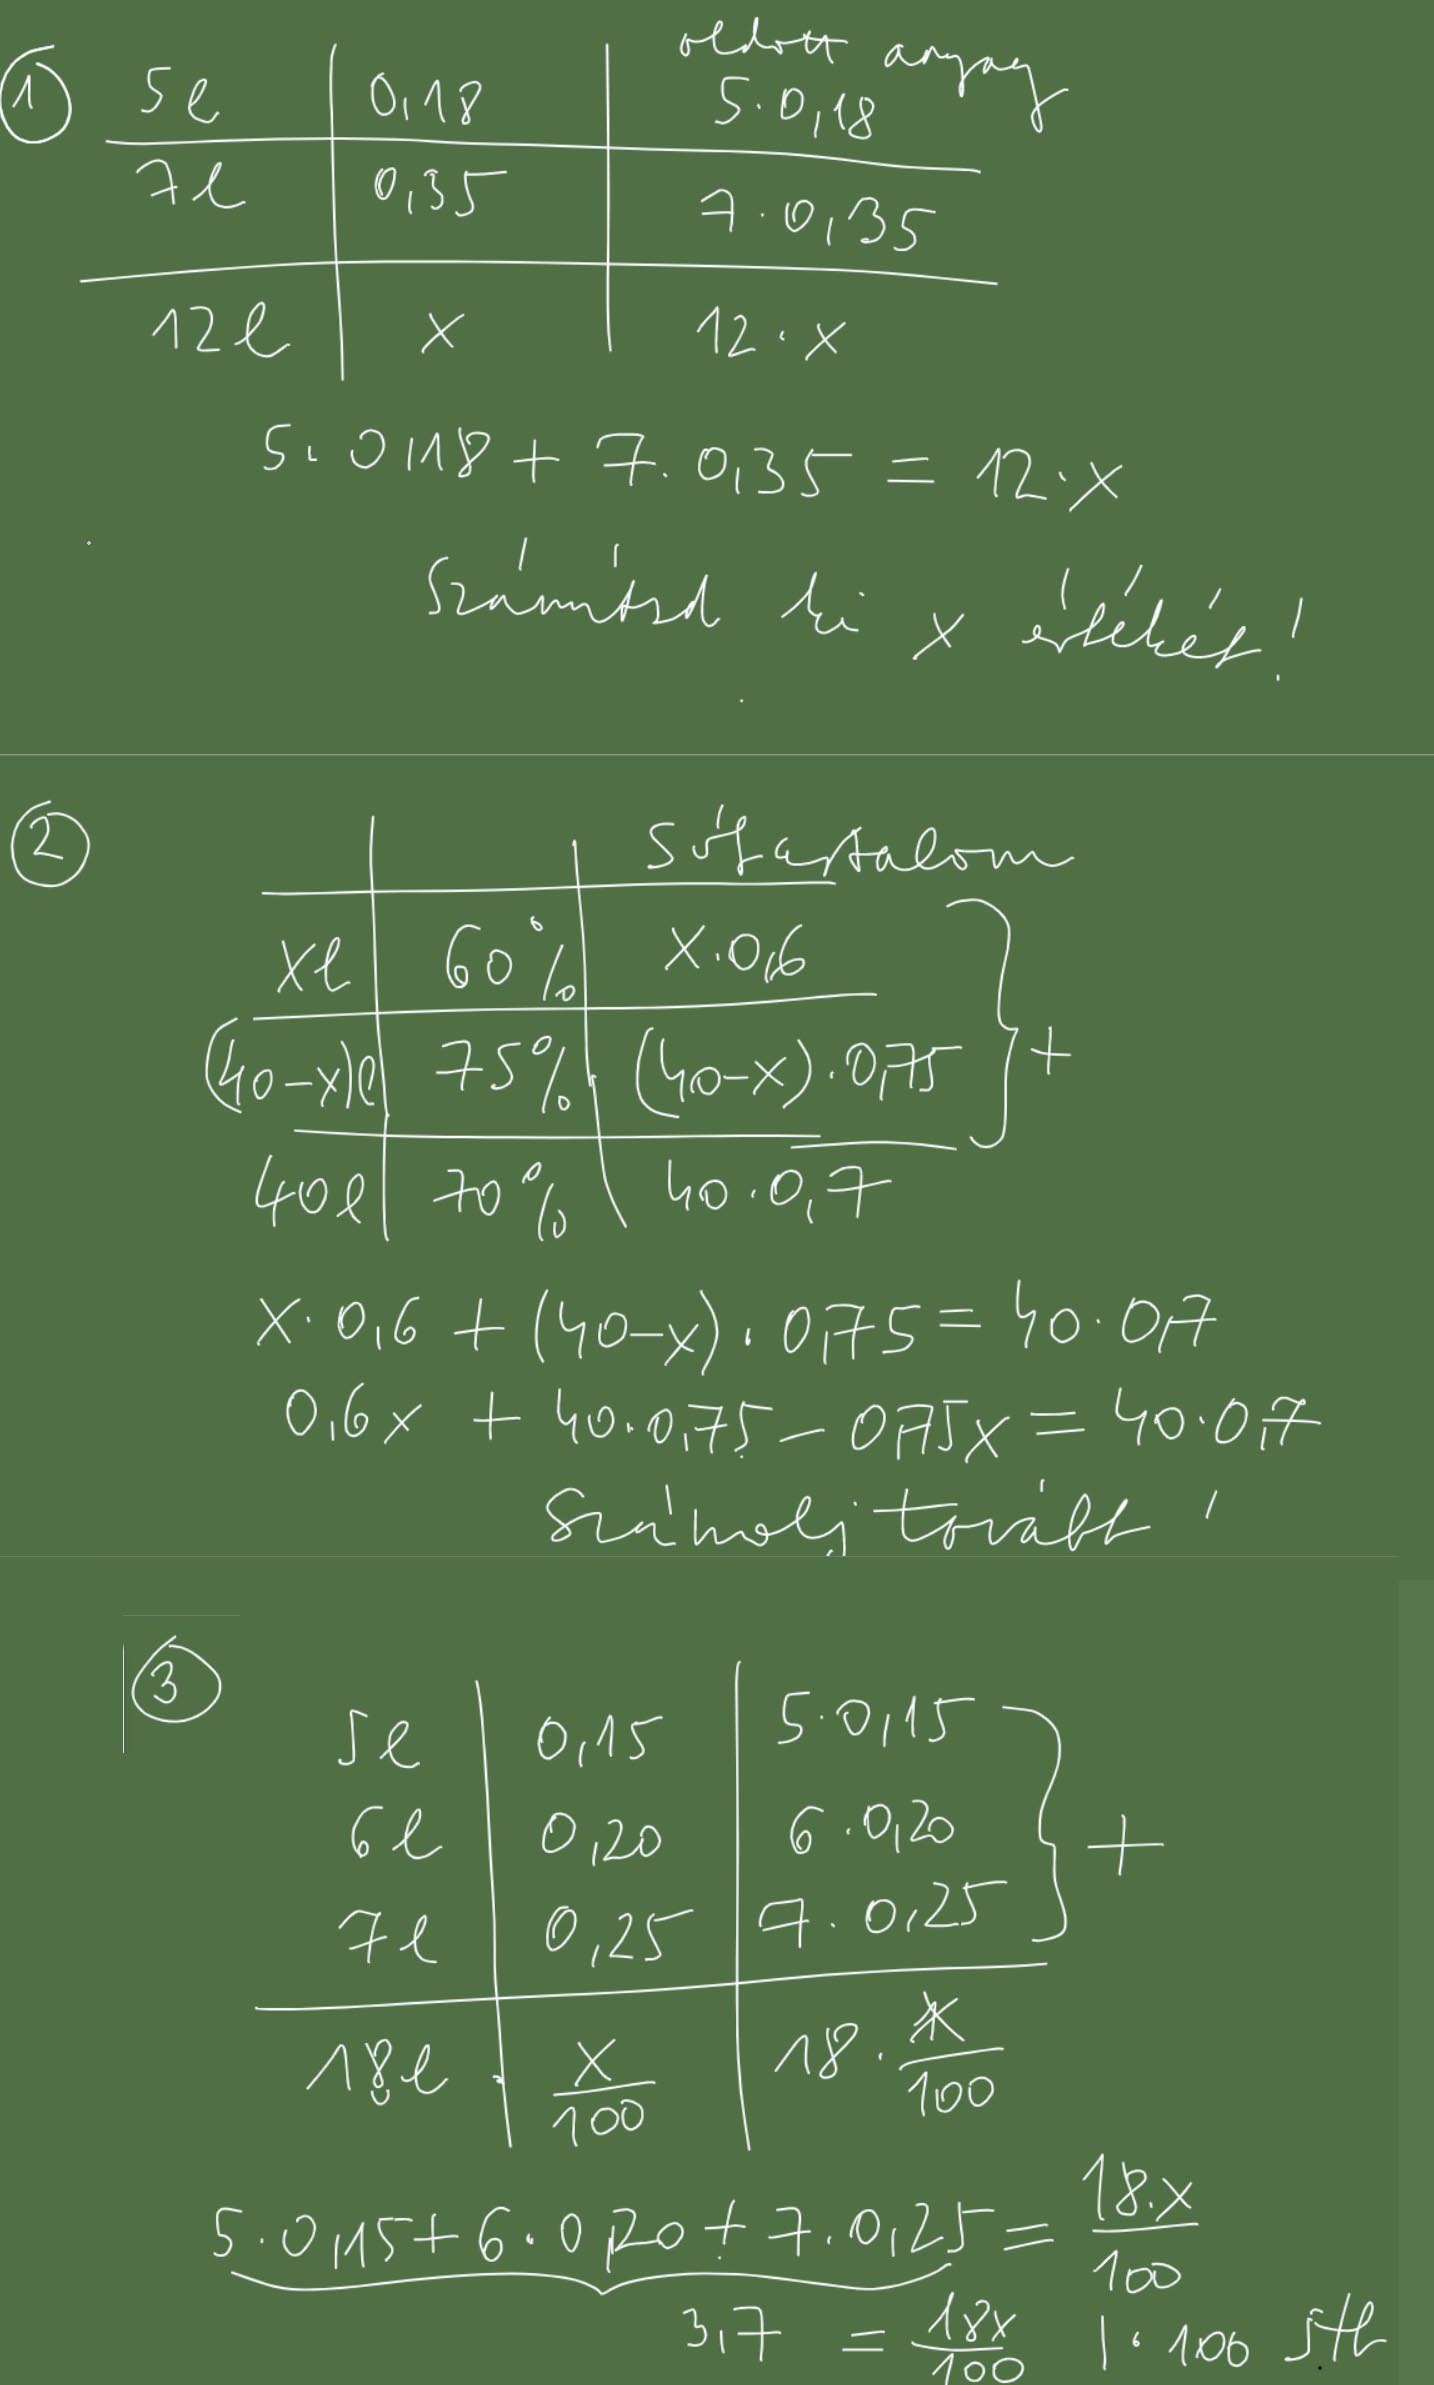 oldott anyag
1 5l 0,18 5·0,18
7l 0,35 7·0,35
12l x 12·x
5·0,18 + 7·0,35 = 12·x
Számítsd ki x értékét!
2 Sótartalom
xl 60% x·0,6
(40-x)l 75% (40-x)·0,75 +
40l 70% 40·0,7
x·0,6 + (40-x)·0,75 = 40·0,7
0,6x + 40·0,75 - 0,75x = 40·0,7
Számolj tovább!
3
5l 0,15 5·0,15
6l 0,20 6·0,20 +
7l 0,25 7·0,25
18l x/100 18·x/100
5·0,15 + 6·0,20 + 7·0,25 = 18·x/100
3,7 = 18x/100 |·100 stb